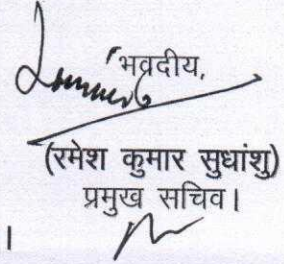 भवदीय,
(रमेश कुमार सुधांशु)
प्रमुख सचिव।
।